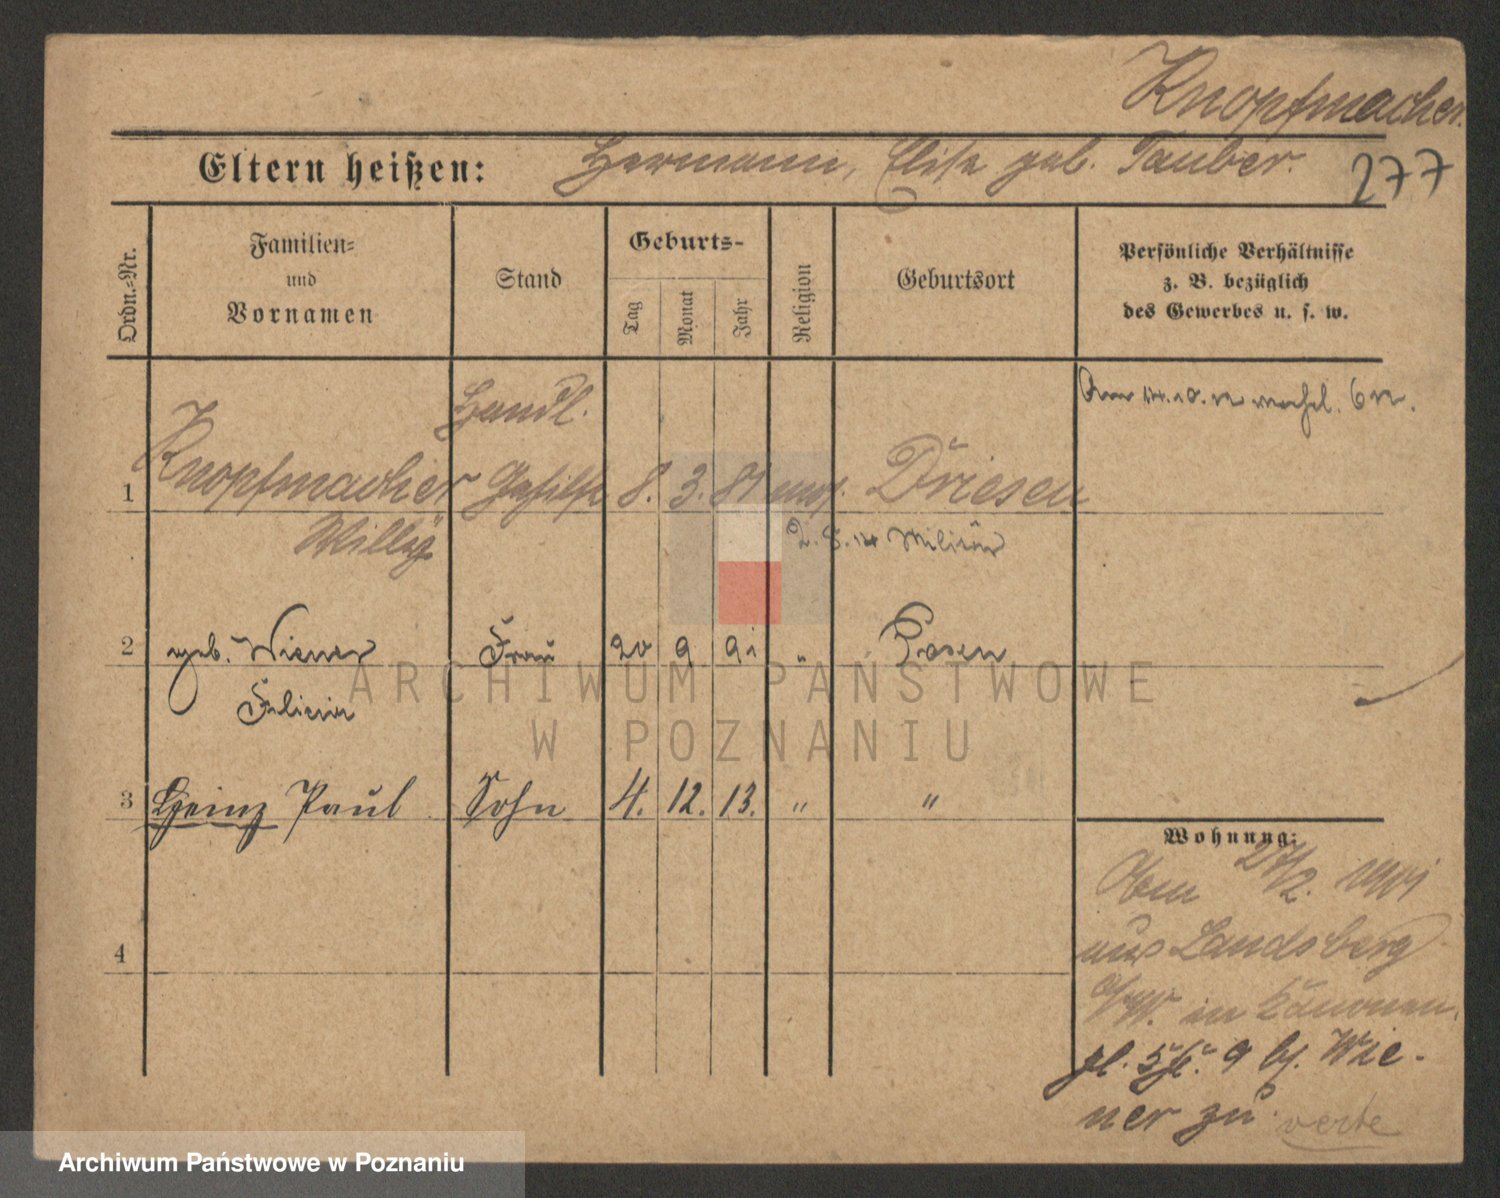 Knopfmacher.
Eltern heißen: Hermann, Elise geb. Tauber.
277
Ordn.-Nr.
Familien-
und
Vornamen
Stand
Geburts-
Tag
Monat
Jahr
Religion
Geburtsort
Persönliche Verhältnisse
z. B. bezüglich
des Gewerbes u. s. w.
Handl.
1 Knopfmacher Gehilfe 8. 3. 81 mos. Driesen
Willy
2. 8. 14 Militär
2 geb. Wiener Frau 20 9 91 " Posen
Felicia
3 Heinz Paul Sohn 4. 12. 13. " "
4
Wohnung:
27/2.
aus Landsberg
a/W. in
9 bei Wie-
ner zu
verte
ARCHIWUM PAŃSTWOWE
W POZNANIU
Archiwum Państwowe w Poznaniu